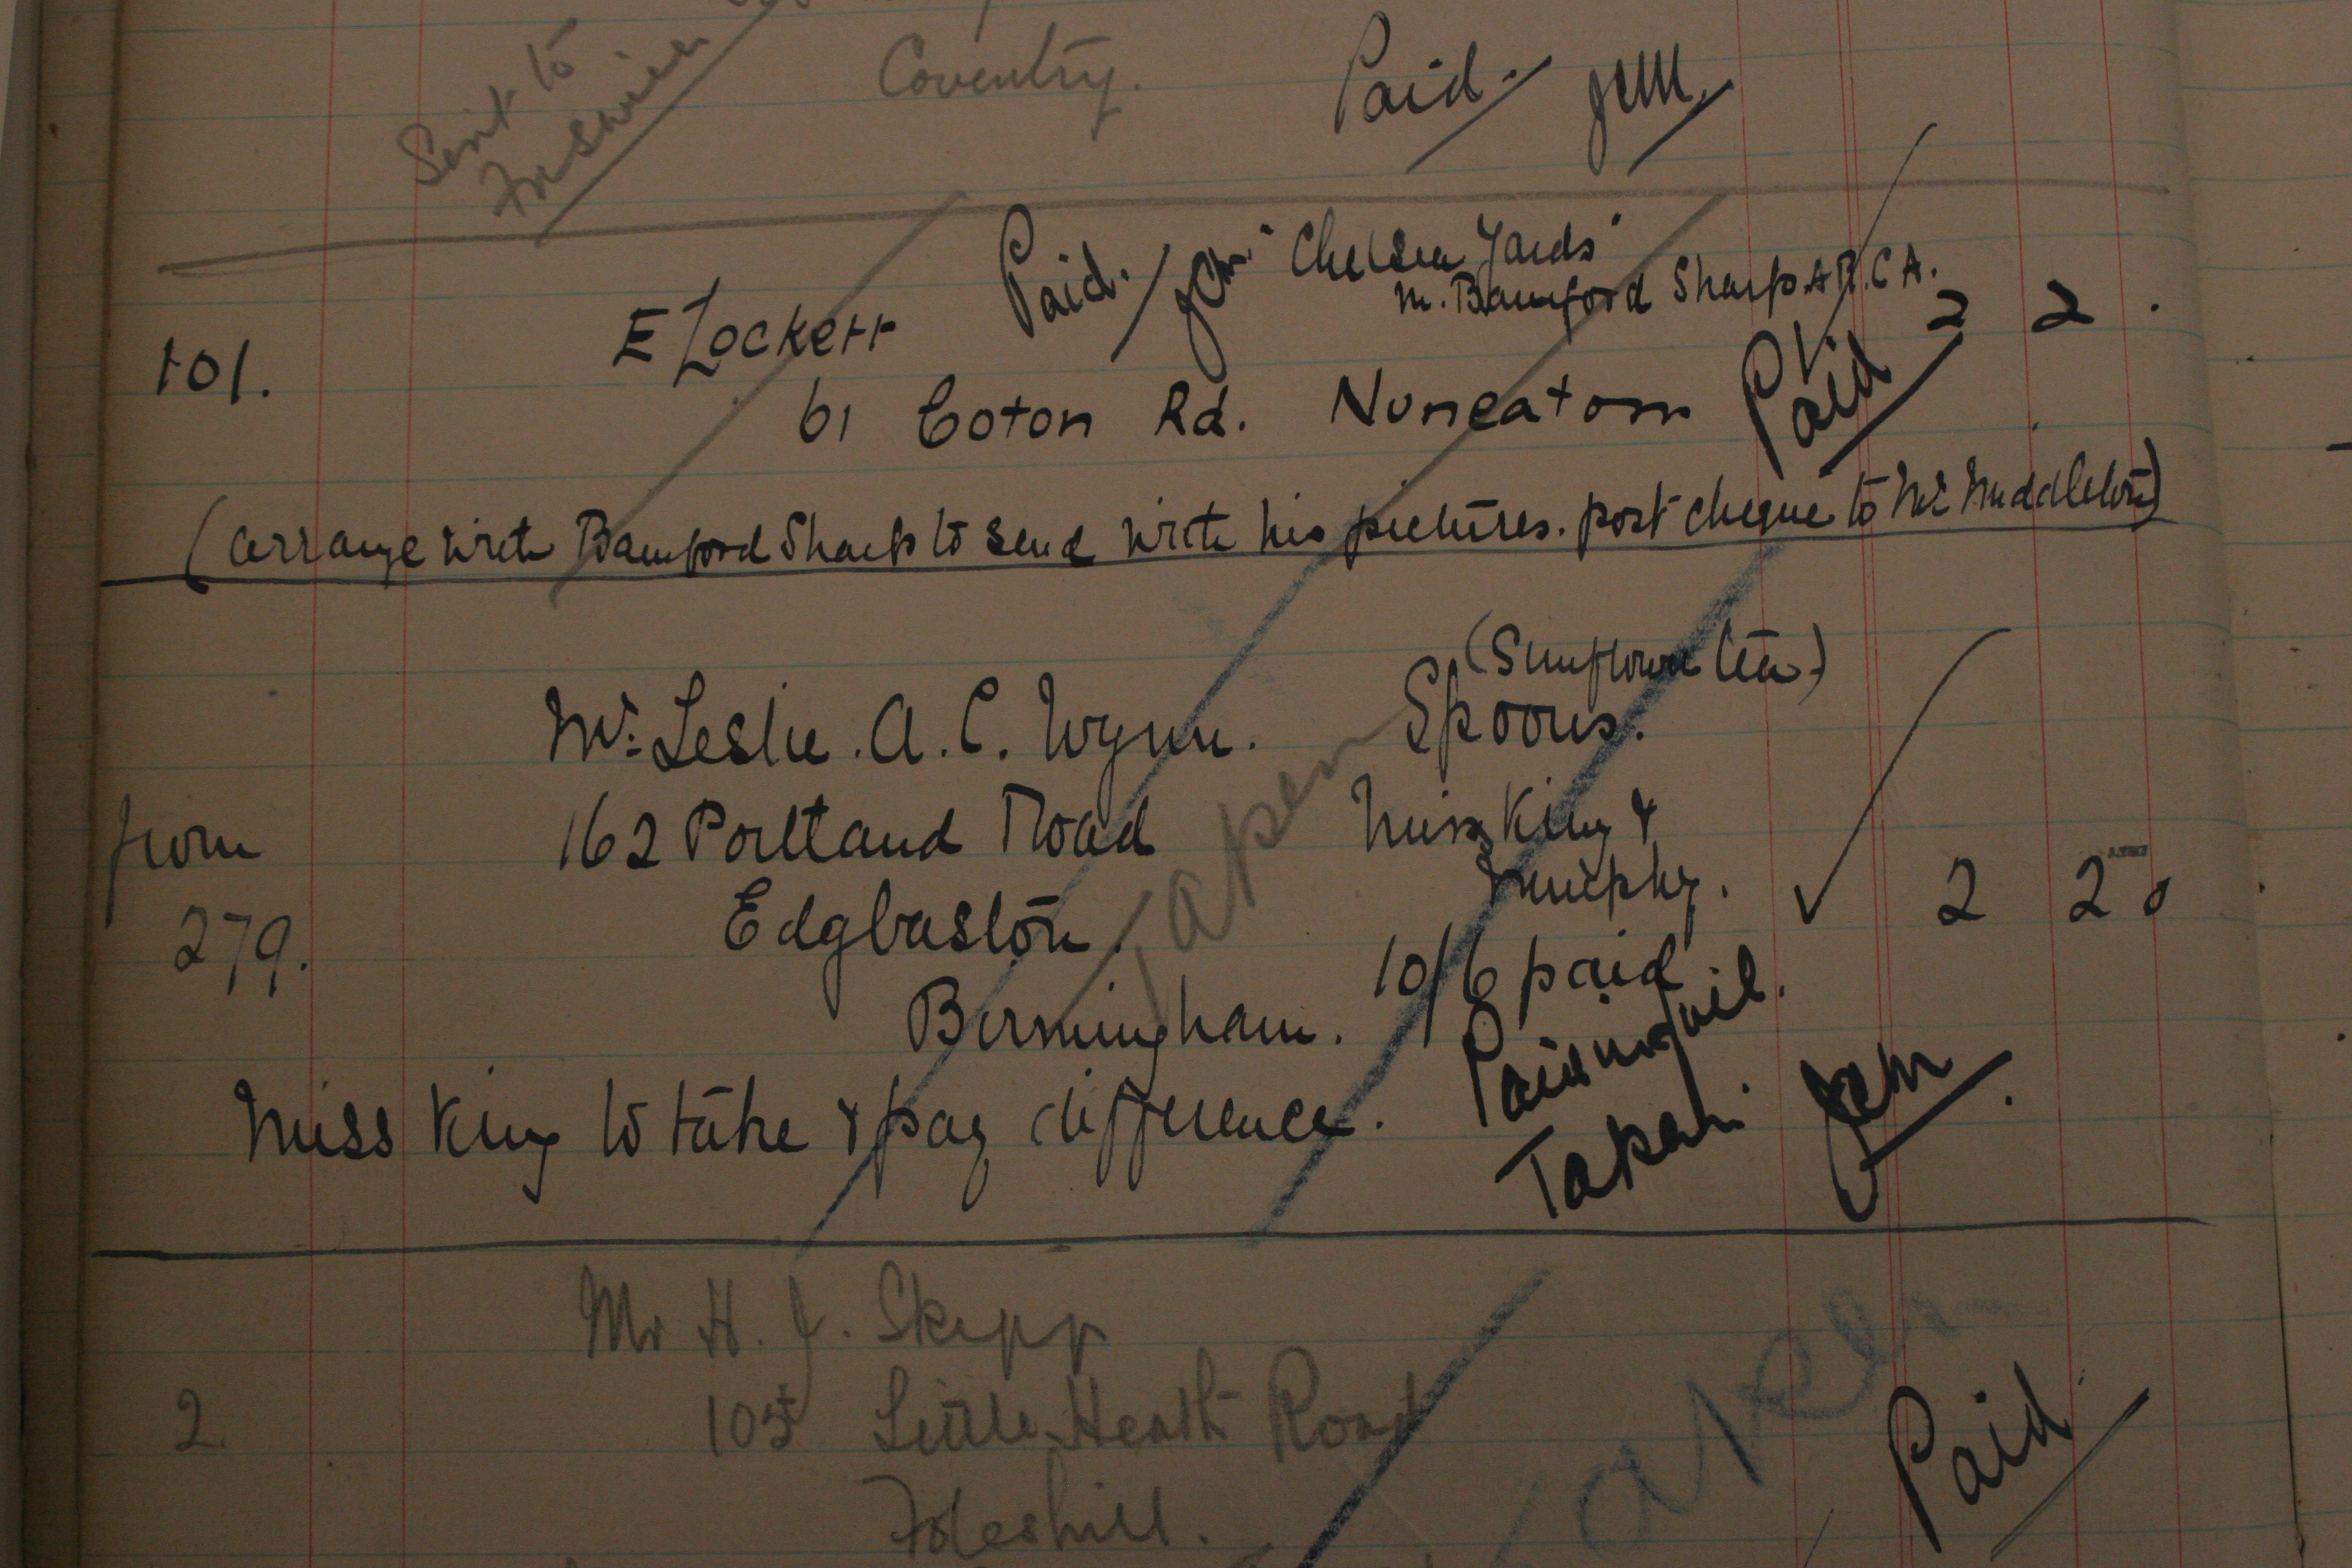 Sent to
Coventry.
Paid. JCM.
Paid. JCM. "Chelsea Yards"
M. Bamford Sharp A R.C A.
101. E Lockett 2 2 .
61 Coton Rd. Nuneaton Paid
(arrange with Bamford Sharp to send with his pictures. post cheque to Mr Middleton)
(Sunflower tea)
Mr. Leslie. A. C. Wynn. Spoons.
from 162 Portland Road Miss King &
279. Edgbaston. Murphy. 2 2 0
Taken
Birmingham. 10/6 paid
Paid
Miss King to take & pay difference.
Taken. JCM
Mr H. J. Skipp
2. 105 Little Heath Road
Taken
Paid.
Foleshill.